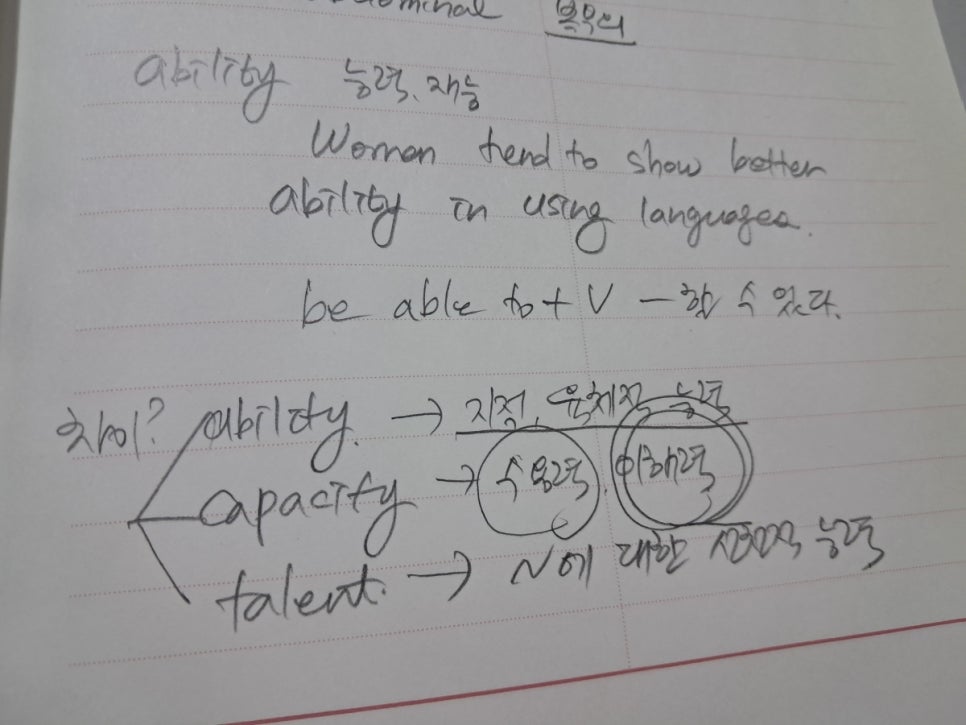 복부의
ability 능력, 재능
Women tend to show better
ability in using languages.
be able to + V - 할 수 있다.
차이? ability. → 지적, 육체적 능력
capacity → 수용력, 이해력
talent. → N에 대한 선천적 능력